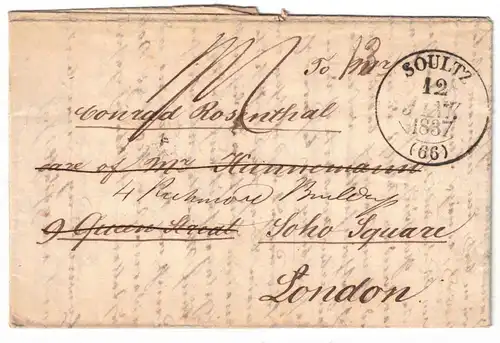 To Mr
Conrad Rosenthal
care of Mr Hannemann
4 Richmond Buildgs
9 Queen Street Soho Square
London
SOULTZ
12
1837
(66)